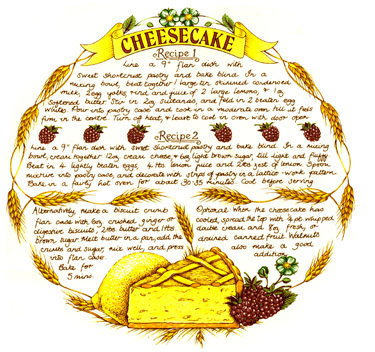 CHEESECAKE
Recipe 1
Line a 9" flan dish with
sweet shortcrust pastry and bake blind. In a
mixing bowl, beat together 1 large tin skimmed condensed
milk, 2 egg yolks, rind and juice of 2 large lemons, + 1oz
softened butter. Stir in 2oz sultanas, and fold in 2 beaten egg
whites. Pour into pastry case and cook in a moderate oven till it feels
firm in the centre. Turn off heat, + leave to cool in oven with door open.
Recipe 2
Line a 9" flan dish with sweet shortcrust pastry and bake blind. In a mixing
bowl, cream together 12oz cream cheese + 6oz light brown sugar, till light and fluffy
Beat in 4 lightly beaten eggs, 4 tbs lemon juice and 2 tbs zest of lemon. Spoon
mixture into pastry case, and decorate with strips of pastry in a lattice-work pattern
Bake in a fairly hot oven for about 30-35 minutes. Cool before serving
Alternatively, make a biscuit crumb
flan case with 6oz crushed ginger or
digestive biscuits, 2oz butter and 1 tbs.
brown sugar. Melt butter in a pan, add the
crumbs and sugar, mix well, and press
into flan case.
Bake for
5 mins.
Optional: When the cheesecake has
cooled, spread the top with ¼ pt whipped
double cream and 8oz fresh, or
drained canned fruit. Walnuts
also make a good
addition.